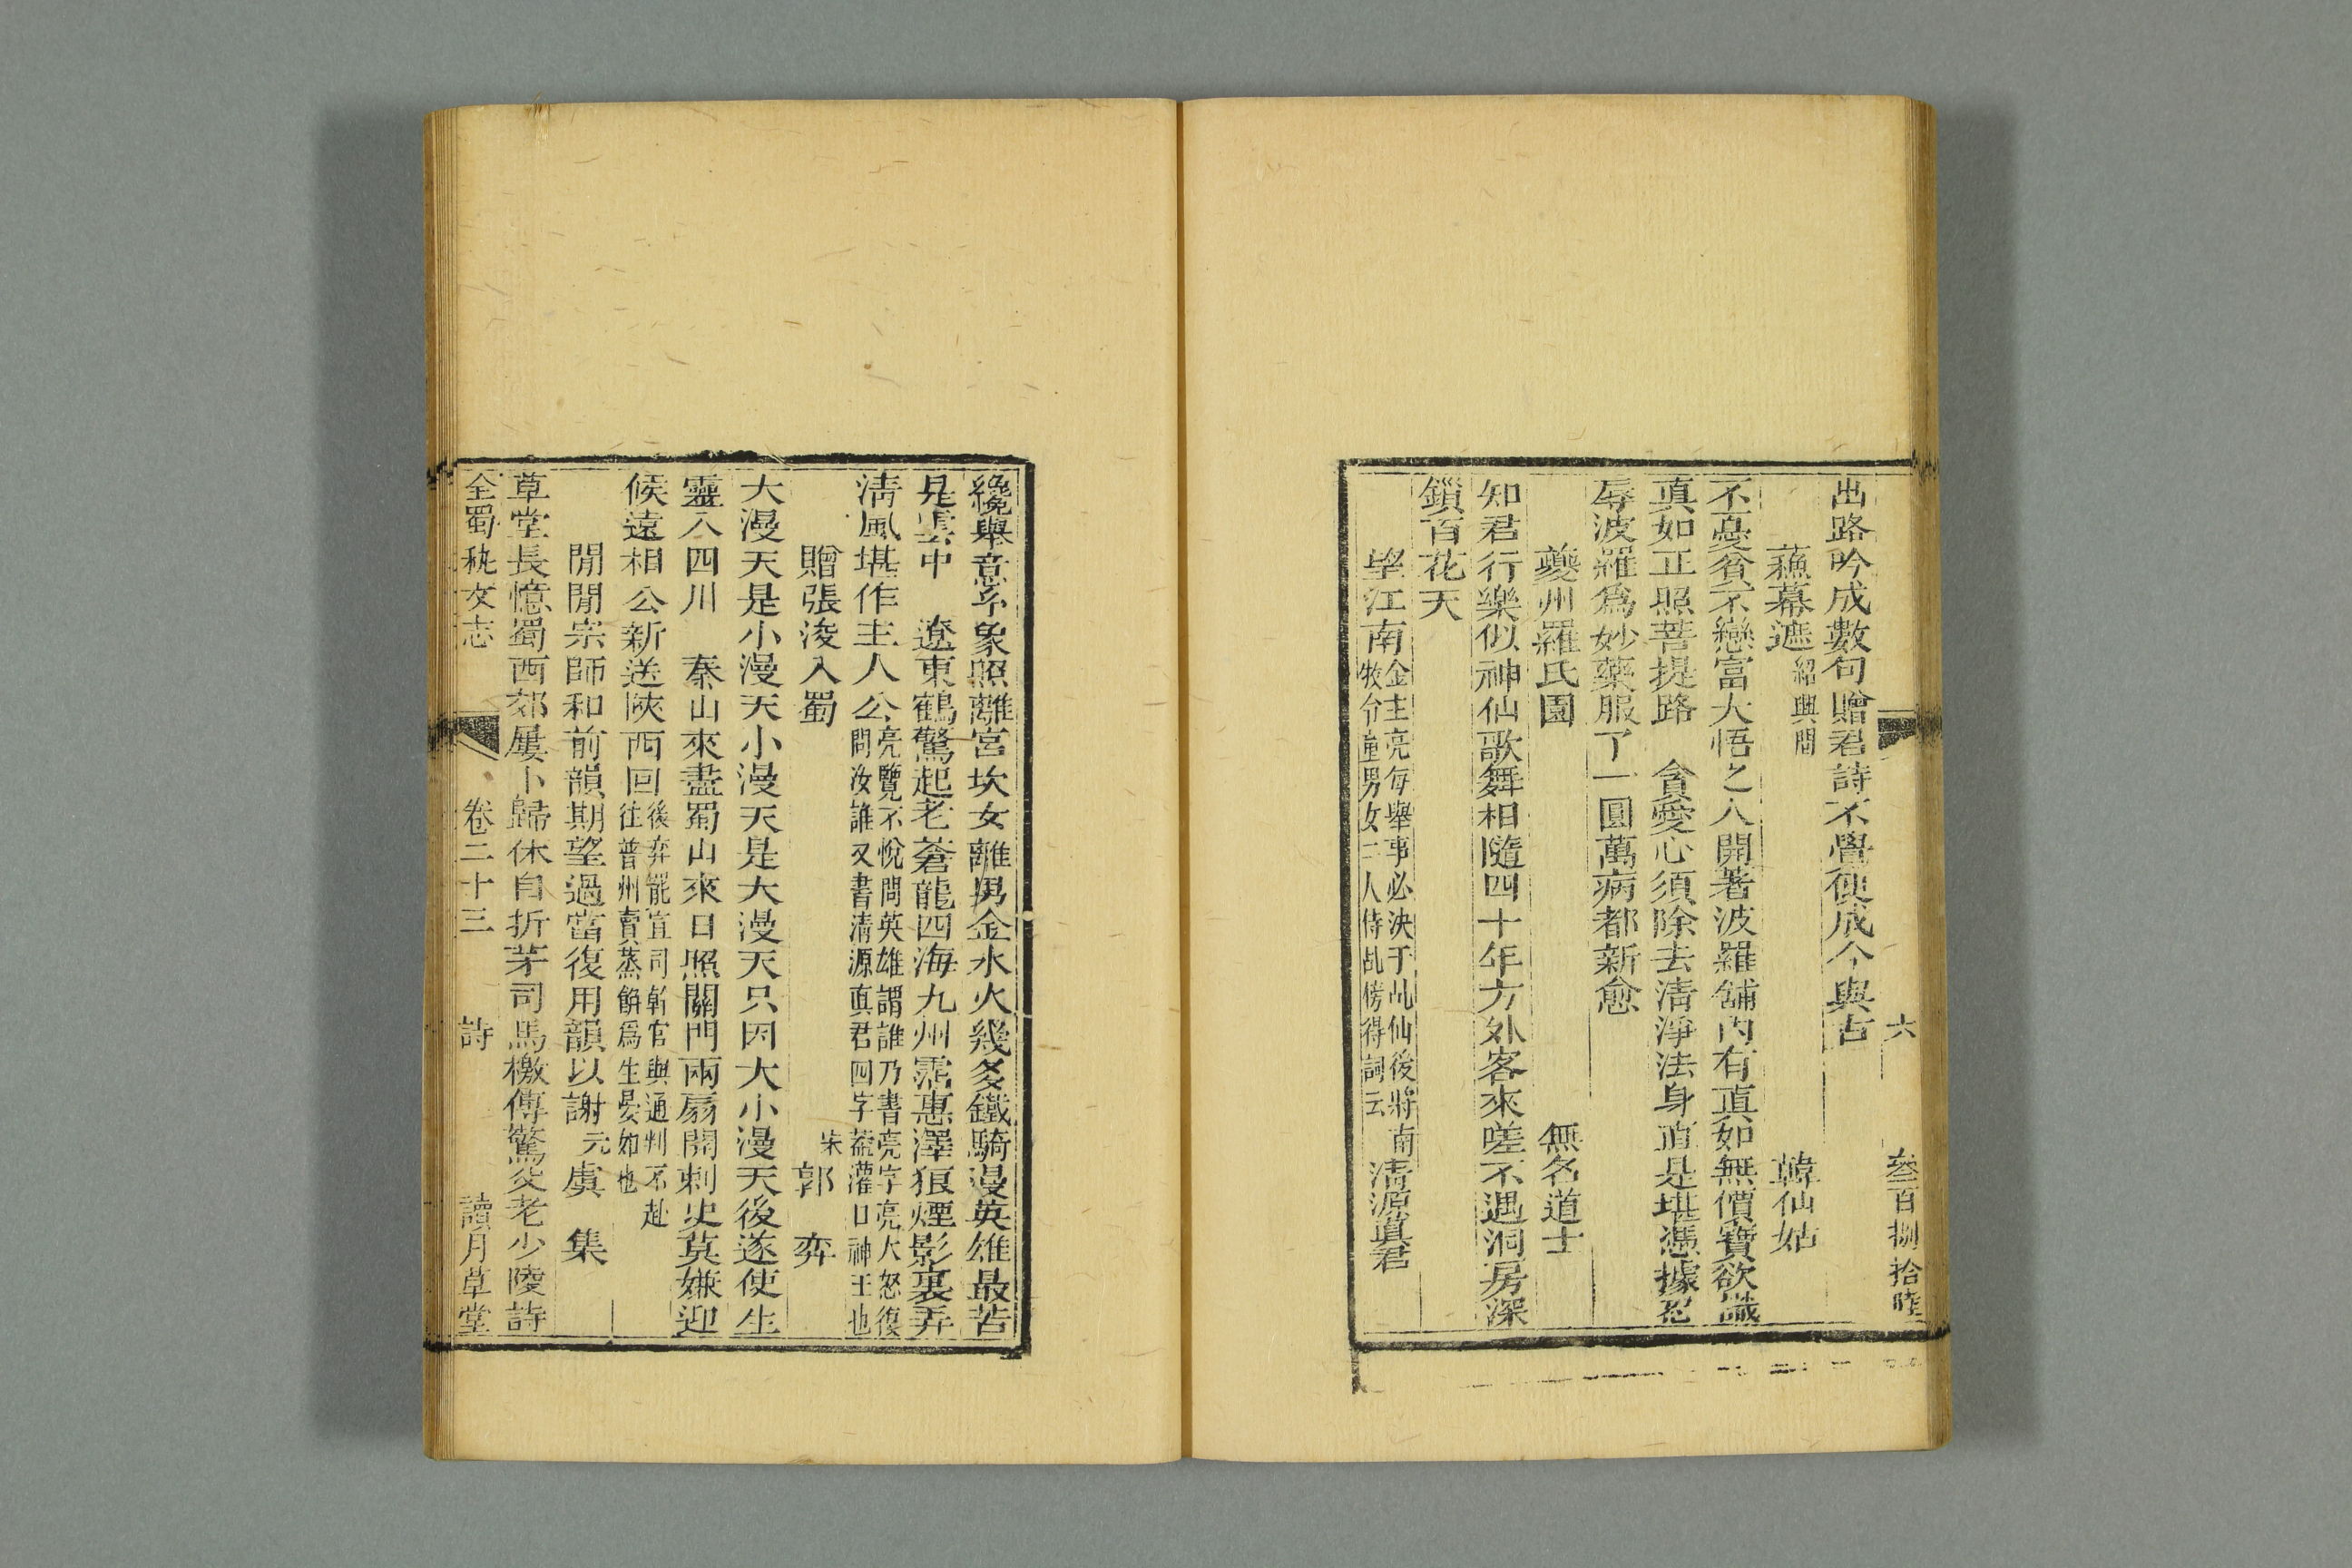 六　叄百捌拾陸
出路吟成數句贈君詩不覺便成今與古
蘓幕遮紹興間　韓仙姑
不憂貧不戀富大悟之人開著波羅舖內有眞如無價寶欲識
眞如正照菩提路　貪愛心須除去清淨法身直是堪憑據忍
辱波羅爲妙藥服了一圓萬病都新愈
夔州羅氏園　無名道士
知君行樂似神仙歌舞相隨四十年方外客來嗟不遇洞房深
鎖百花天
望江南金主亮每舉事必決于乩仙後將南
牧令童男女二人侍乩傍得詞云　清源眞君
纔舉意象照離宮坎女離男金水火幾多鐵騎漫英雄最苦
是雲中　遼東鶴驚起老蒼龍四海九州霑惠澤狼煙影裏弄
清風堪作主人公亮覽不悅問英雄謂誰乃書亮字亮大怒復
問汝誰又書清源眞君四字葢灌口神王也
贈張浚入蜀　宋郭　弈
大漫天是小漫天小漫天是大漫天只因大小漫天後遂使生
靈入四川　秦山來盡蜀山來日照關門兩扇開刺史莫嫌迎
候遠相公新送陝西回後弈罷宣司幹官與通判不赴
往普州賣蒸餅爲生晏如也
閒閒宗師和前韻期望過當復用韻以謝　元虞　集
草堂長憶蜀西郊屢卜歸休自折茅司馬檄傳驚父老少陵詩
全蜀秇文志　卷二十三　詩　讀月草堂